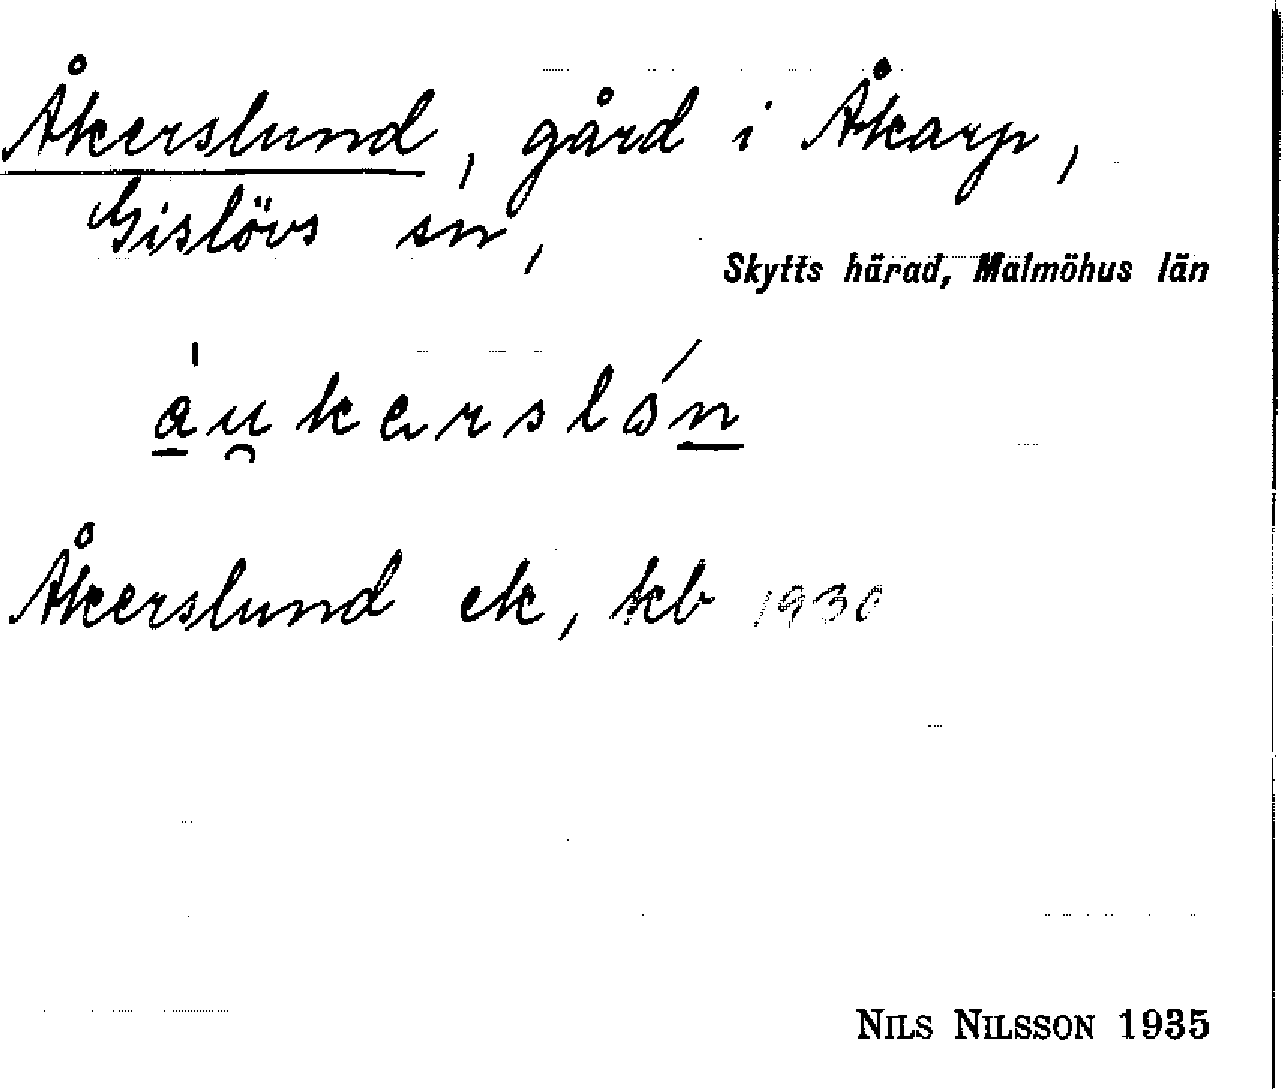 Åkerslund, gård i Åkarp,
Gislövs sn,
Skytts härad, Malmöhus län
Åkerslund ek, kb 1930
NILS NILSSON 1935